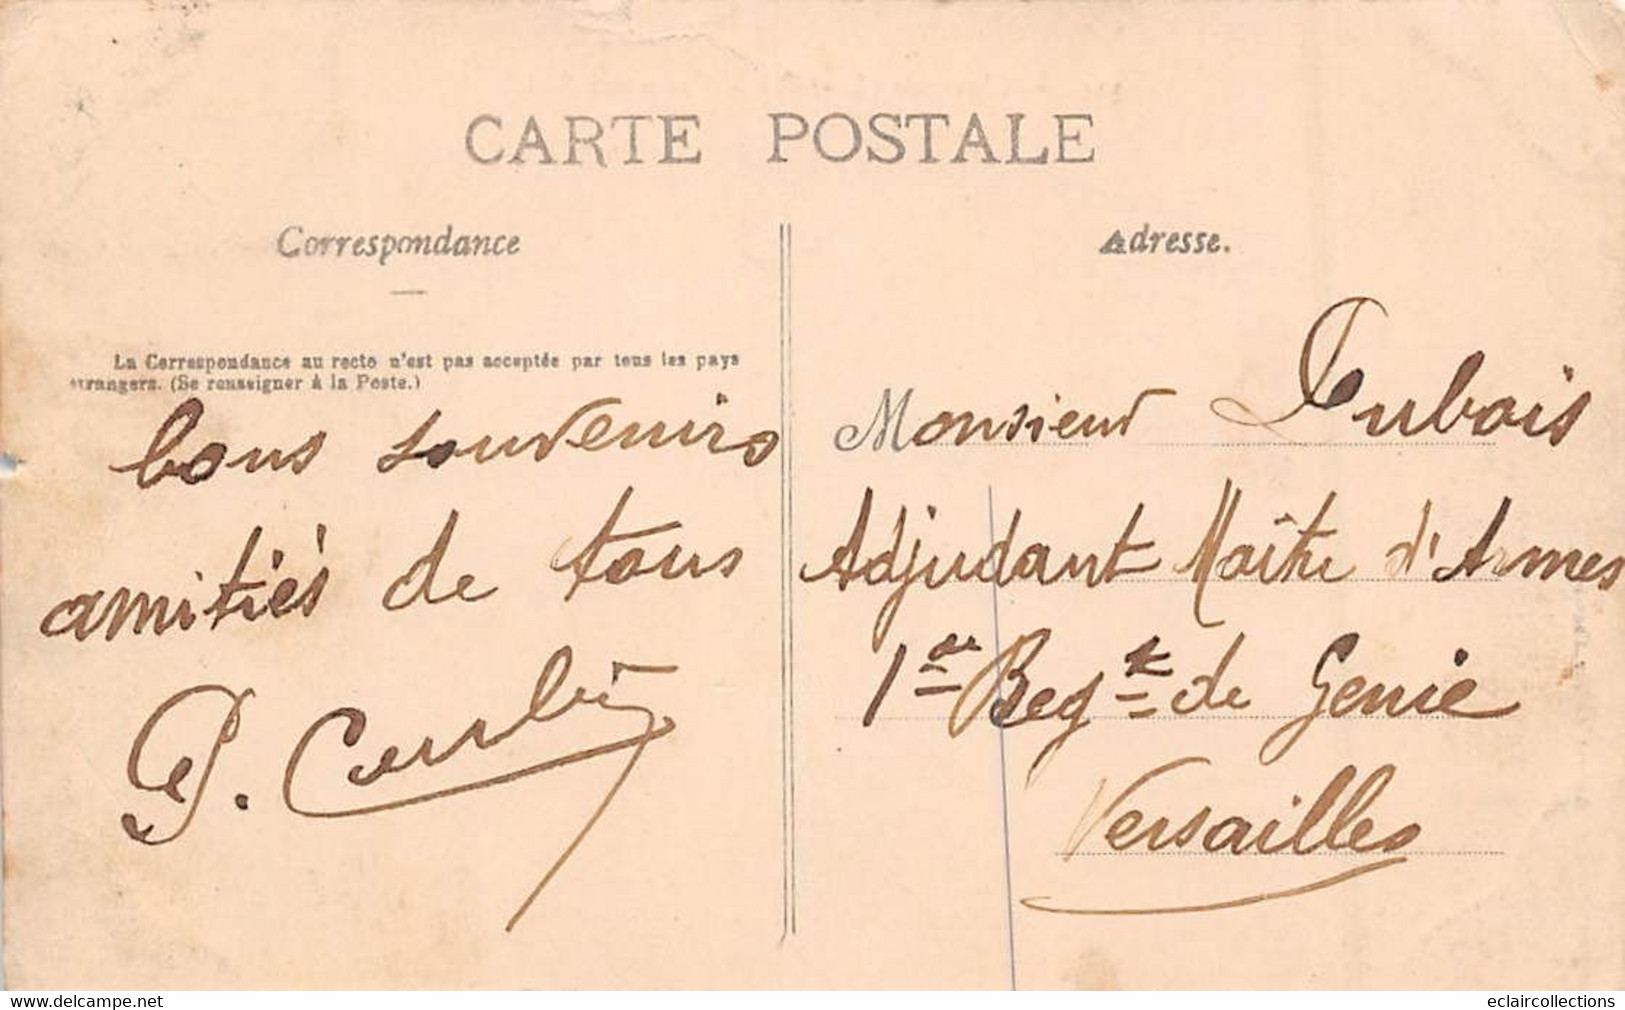 CARTE POSTALE
Correspondance
La Correspondance au recto n'est pas acceptée par tous les pays
etrangers. (Se renseigner à la Poste.)
bons souvenirs
amitiés de tous
P.
Adresse.
Monsieur Dubois
Adjudant Maître d'Armes
1er Regt de Genie
Versailles
www.delcampe.net
eclaircollections